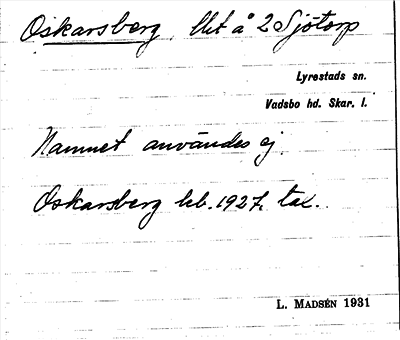 Oskarsberg, lht å 2 Sjötorp
Lyrestads sn.
Vadsbo hd. Skar. l.
Namnet användes ej.
Oskarsberg hb. 1927, tax.
L. MADSÉN 1931